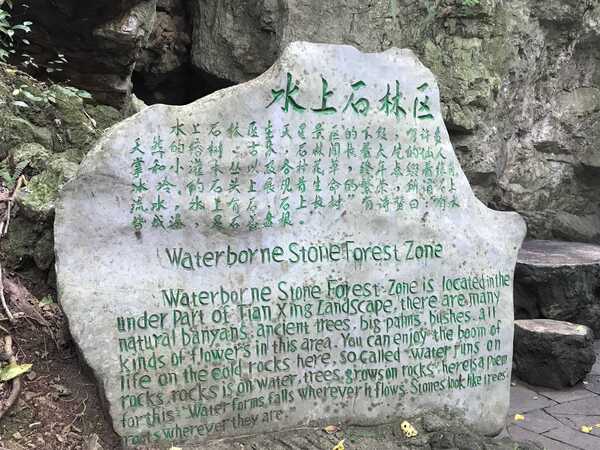 水上石林区
水上石林区 天星景区的下段，有许多
天然的榕树、古 ，石林间长着大片的仙人
掌和小灌木丛以及各种花草，终年点缀着
冰冷的石头上展现着生命的繁 ，所谓"石上
流水，水上有石，石上长树"有诗赞曰："有水
皆成瀑，是石总盘根。
Waterborne Stone Forest Zone
Waterborne Stone Forest Zone is located in the
under part of Tian Xing Landscape, there are many
natural banyans, ancient trees, big palms, bushes, all
kinds of flowers in this area. You can enjoy the boom of
life on the cold rocks here, so called "Water runs on
rocks, rocks is on water, trees grows on rocks", here is a poem
for this: "Water forms falls wherever it flows. Stones look like trees
roots wherever they are.